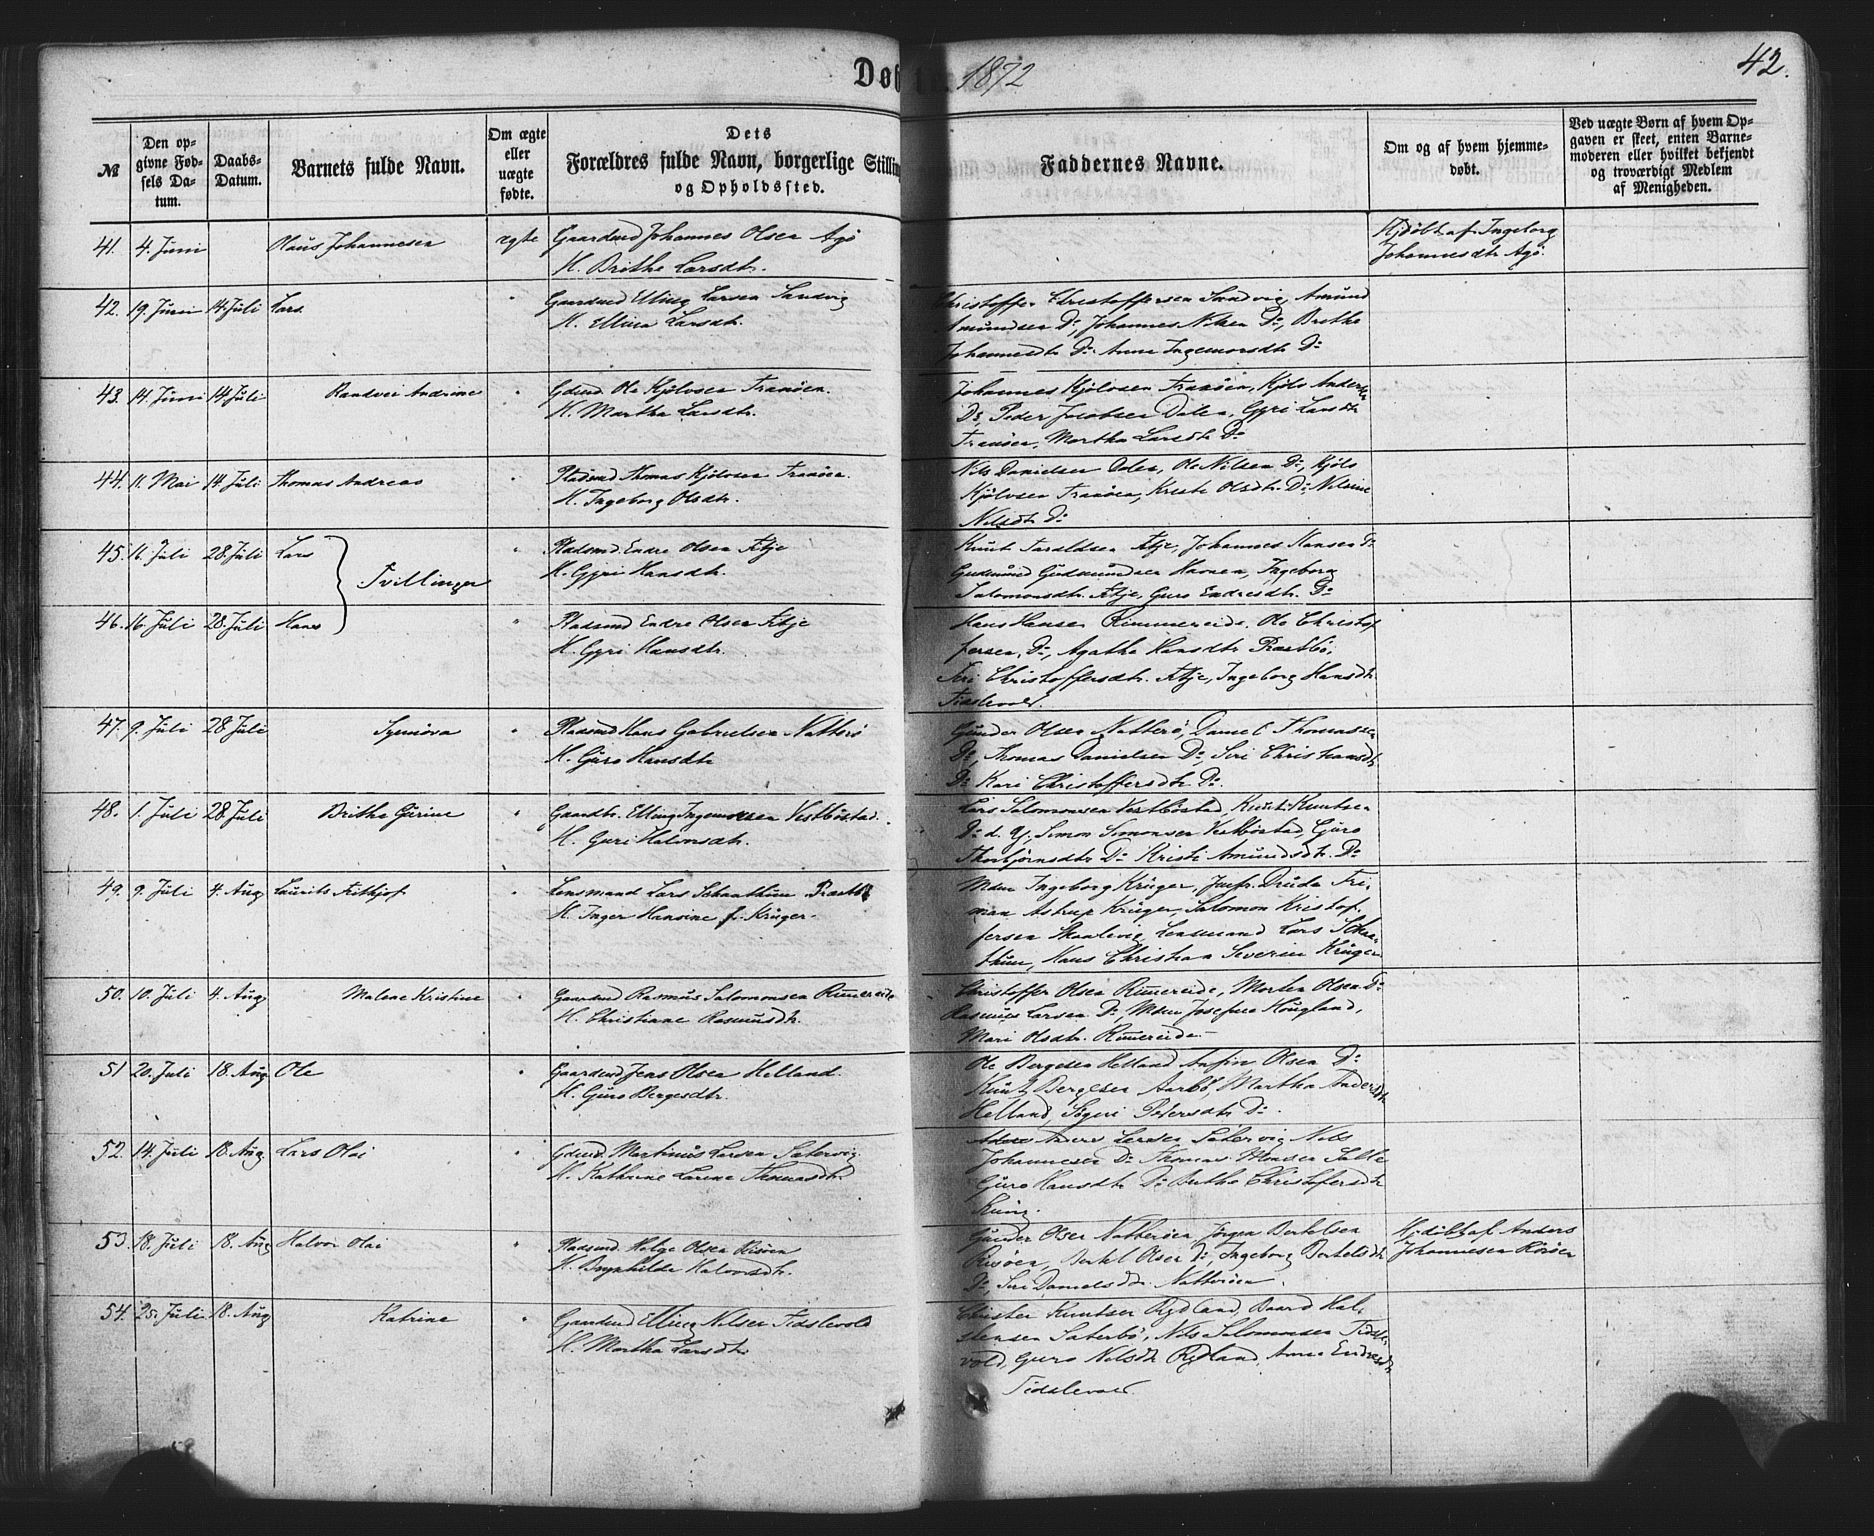 Døb 1872
42.
№
Den op-
givne Fød-
sels Da-
tum.
Daabs-
Datum.
Barnets fulde Navn.
Om ægte
eller
uægte
fødte.
Dets
Forældres fulde Navn, borgerlige Stilling
og Opholdssted.
Faddernes Navne.
Om og af hvem hjemme-
døbt.
Ved uægte Børn af hvem Op-
gaven er skeet, enten Barne-
moderen eller hvilket bekjendt
og troværdigt Medlem
af Menigheden.
41. 4. Juni Olaus Johannesen ægte Gaardmd Johannes Olsen Agø
H. Brithe Larsdtr.
Hjdøbt af Ingeborg
Johannesdtr Agø.
42. 19. Juni 14. Juli Lars. Gaardmd Elling Larsen Sandvig
H. Ellina Larsdtr.
Christoffer Christoffersen Sandvig, Amund
Amundsen Do, Johannes Nilsen Do, Brethe
Johannesdtr Do Anne Ingemorsdtr Do
43. 14. Juni 14. Juli Randvei Andrine Gdmd. Ole Kjølvsen Tranøen.
H. Martha Larsdtr.
Johannes Kjølvsen Tranøen, Kjølv
Do, Peder Jacobsen Dalen, Gyri Larsdtr
Tranøen, Martha Larsdtr Do
44. 11. Mai 14. Juli Thomas Andreas Pladsmd Thomas Kjølvsen Tranøen.
H. Ingeborg Olsdtr.
Nils Danielsen Dalen, Ole Nilsen Do, Kjølv
Kjølvsen Tranøen, Kristi Olsdtr. Do Nilsine
Nilsdtr Do
45. 16. Juli 28. Juli Lars Pladsmd Endre Olsen Fitje
H. Gyri Hansdtr.
Tvillinger
Knut Taraldsen Fitje, Johannes Hansen
Gudmund Gudmundsen Havnen, Ingeborg
Salomonsdtr. Fitje, Guro Endresdtr. Do
46. 16. Juli 28. Juli Hans Pladsmd Endre Olsen Fitje
H. Gyri Hansdtr.
Hans Hansen Rimmereide. Ole Christof
fersen, Do, Agathe Hansdtr Præstbø,
Siri Christoffersdtr. Fitje, Ingeborg Hansdtr
Tislevold.
47. 9. Juli 28. Juli Synnøva Pladsmd Hans Gabrielsen Natterø
H. Guro Hansdtr
Gunder Olsen Natterø, Daniel Thomassen
Do, Thomas Danielsen Do, Siri Christiansdtr
Do Kari Christoffersdtr. Do.
48. 1. Juli 28. Juli Brithe Gurine Gaardbr. Elling Ingemorsen Vestbøstad.
H. Guri Halvorsdtr.
Lars Salomonsen Vestbøstad, Knut Knutsen
Do d. y, Simon Simonsen Vestbøstad, Guro
Thorbjørnsdtr Do Kristi Amundsdtr. Do
49. 9. Juli 4. Aug Laurits Frithjof Lensmand Lars Schanthun Præstbø
H. Inger Hansine f. Krüger.
Mdm Ingeborg Krüger, Jmfr. Druda Tri-
man Astrup Krüger, Salomon Kristof-
fersen Skaalevig Lensmand Lars Scha-
thun, Hans Christian Severin Krüger
50. 10. Juli 4. Aug Malene Kristine Gaardmd Rasmus Salomonsen Rimereide
H. Christiane Rasmusdtr.
Christoffer Olsen Rimereide, Morten Olsen Do
Rasmus Larsen Do, Mdm Josefine Hougland,
Mari Olsdtr. Rimereide.
51 20. Juli 18. Aug Ole Gaardmd Jens Olsen Helland.
H. Guro Bergesdtr.
Ole Bergesen Helland Anfin Olsen Do
Knut Bergesen Aarbø, Martha Andersdtr
Helland, Sygni Petersdtr Do.
52. 14. Juli 18. Aug Lars Olai Gdmd. Martinus Larsen Sætervig
H. Kathrine Larine Thomasdtr
Anders Larsen Sætervig Nils
Johannesen Do Thomas Monsen
Guro Hansdtr Do Brithe Christofersdtr
53. 18. Juli 18. Aug Halvor Olai Pladsmd. Helge Olsen Risøen
H. Brynhilde Halvorsdtr.
Gunder Olsen Natterøen Jørgen Bertelsen
Risøen, Bertel Olsen Do, Ingeborg Bertelsdtr
Do, Siri Danielsdtr. Natterøen.
Hjdøbt af Anders
Johannesen Risøen
54. 25. Juli 18. Aug Katrine Gaardmd Elling Nilsen Tidslevold
H. Martha Larsdtr
Christen Knutsen Rydland, Baard Hal-
stensen Sæterbø, Nils Salomonsen Tidsle-
vold, Guro Nilsdtr Rydland, Anne Endresdtr
Tidslevold.